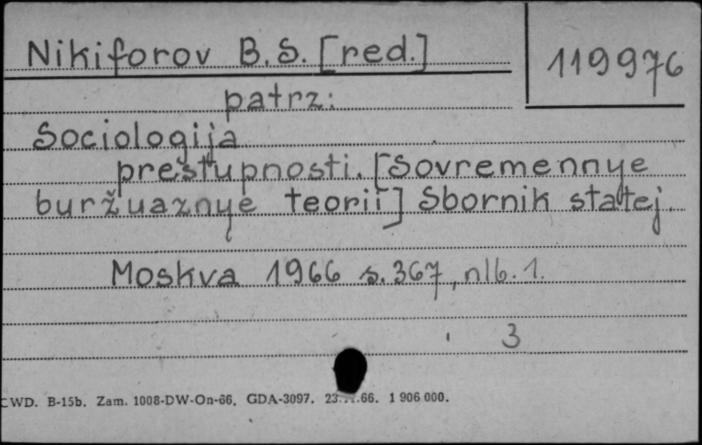 Nikiforov B.S. [red.]
119976
patrz:
Sociologija
prestupnosti. [Sovremennye
buržuaznye teorii] Sbornik statej.
Moskva 1966 s. 367, nlb. 1.
3
CWD. B-15b. Zam. 1008-DW-On-66. GDA-3097. 23. .66. 1 906 000.